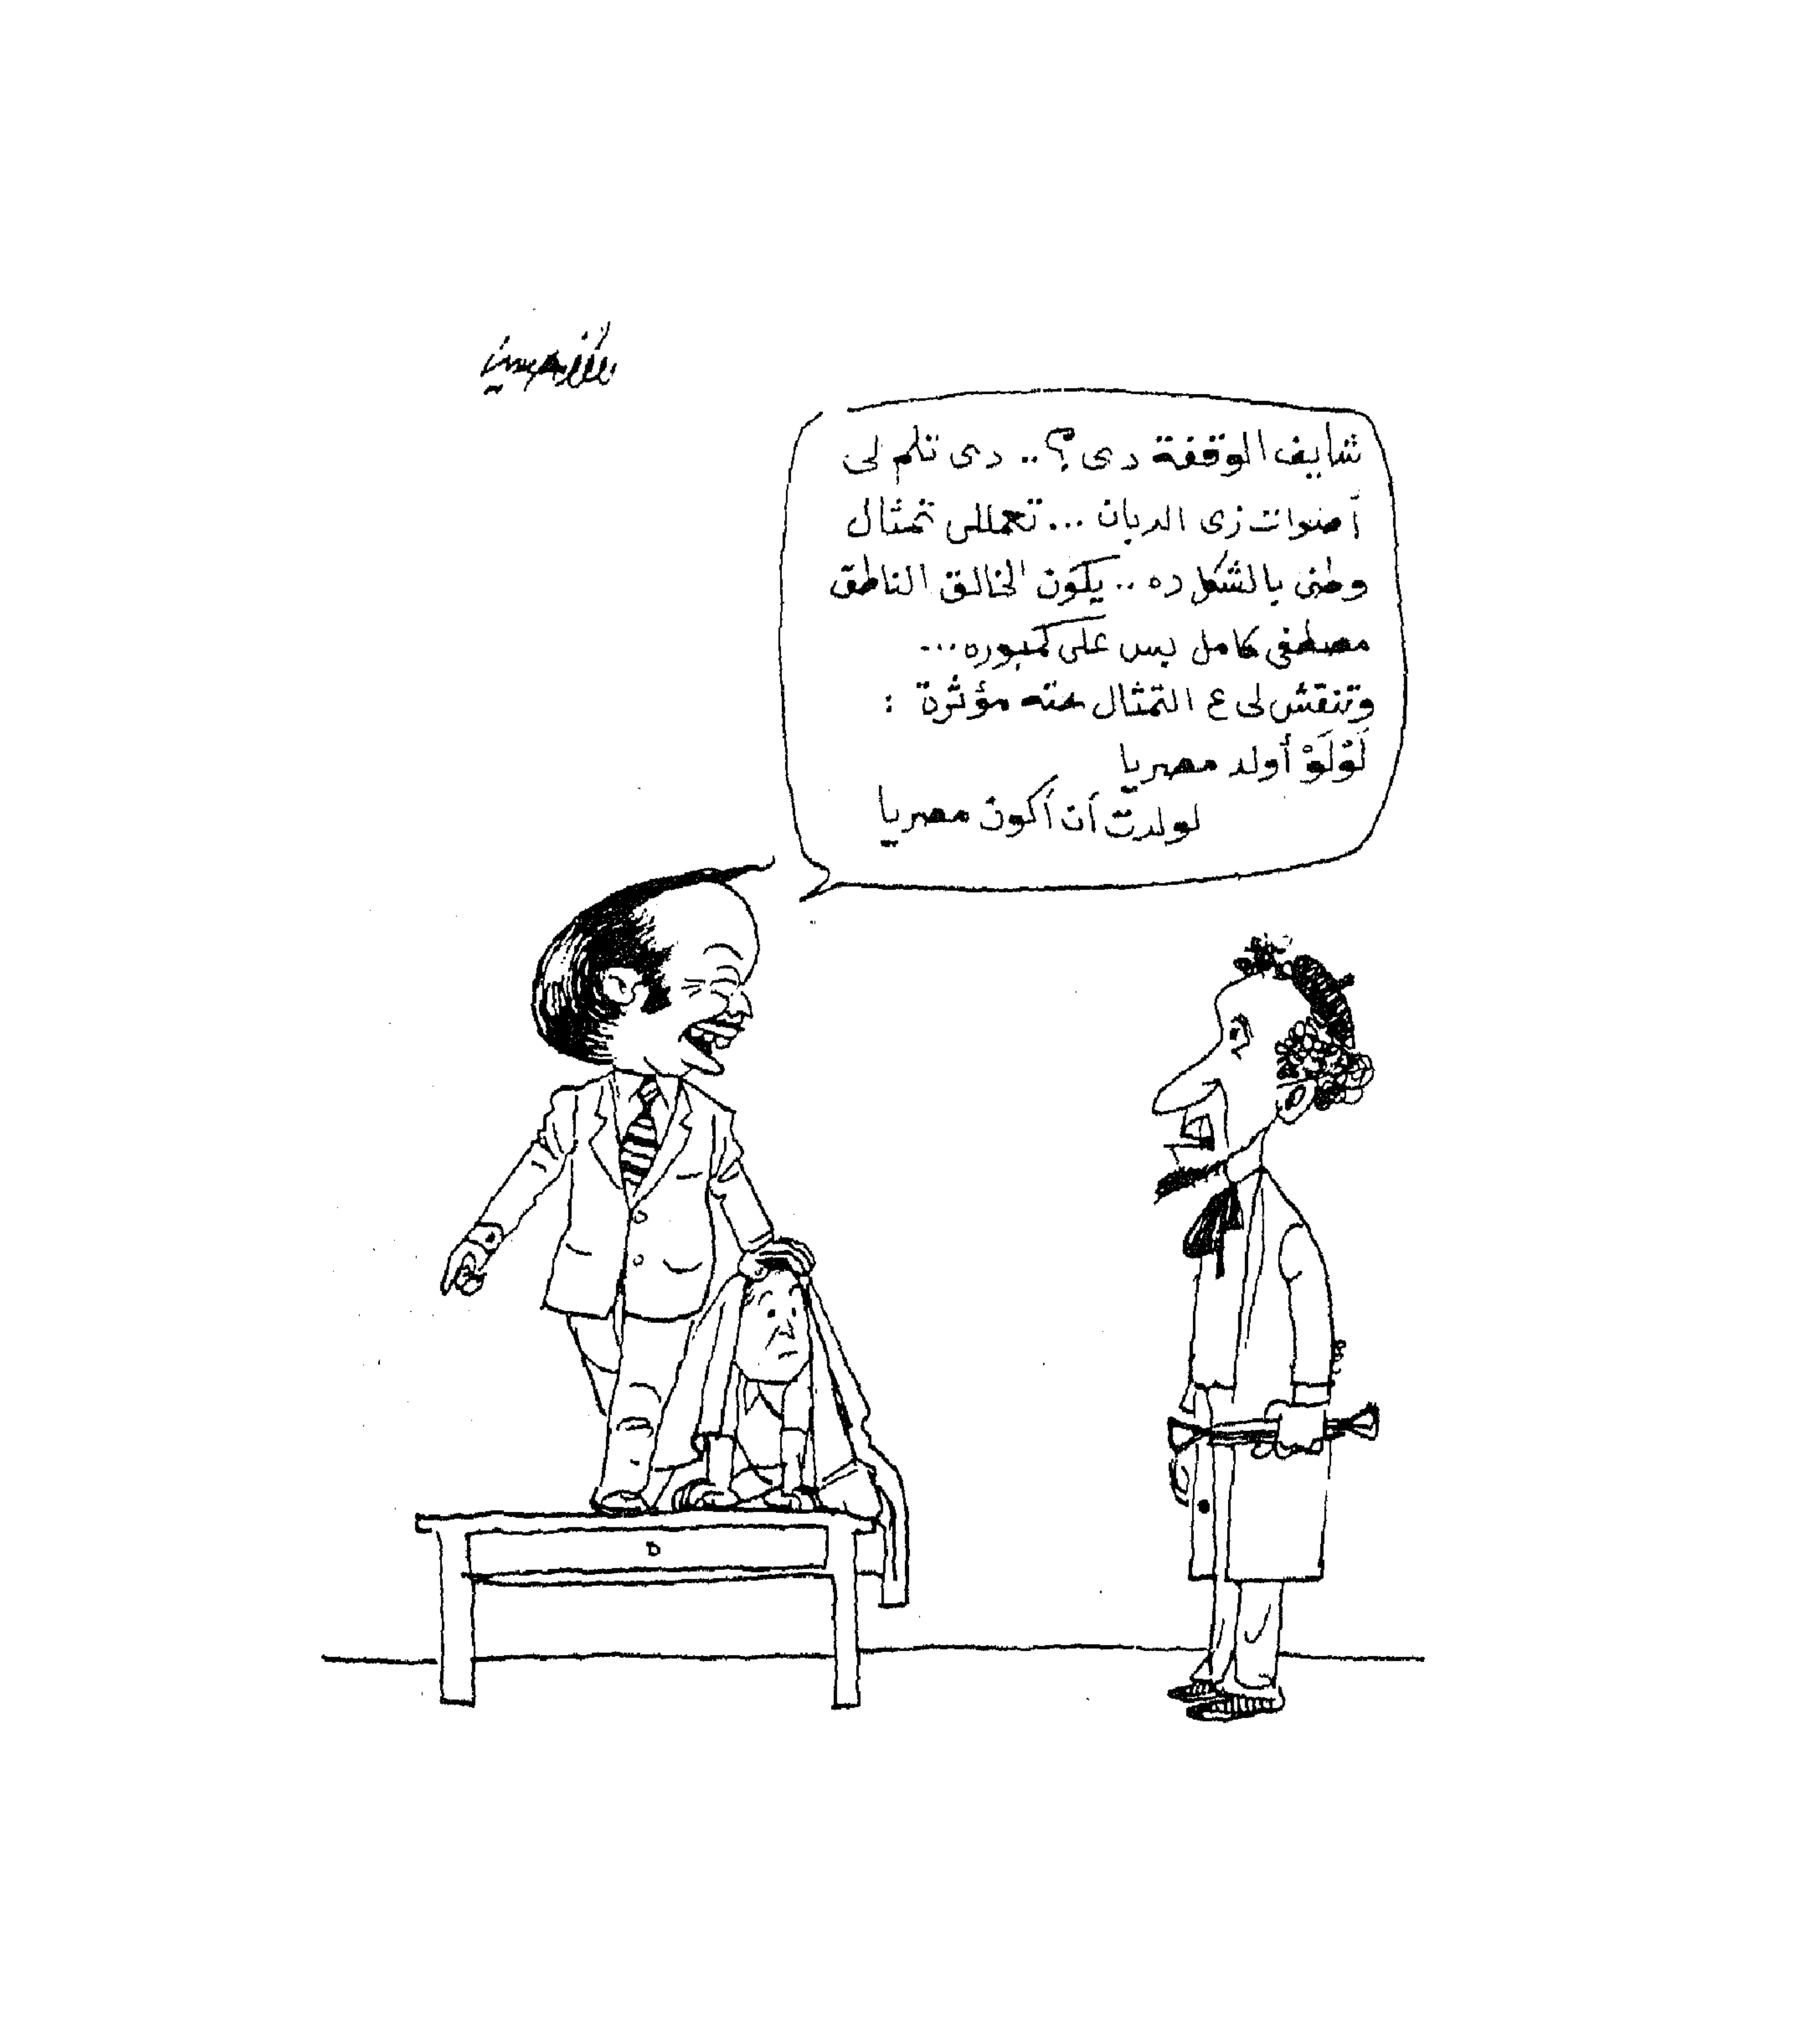 شايف الوقفة دى؟.. دى تلم لى
أصوات زى الدبان... تعمللى تمثال
وطنى بالشكل ده.. يكون الخالق الناطق
مصطفى كامل بس على كمبوره...
وتنقش لى ع التمثال حته مؤثرة :
لَوْلَوْ أولد مصريا
لولدت أن أكون مصريا